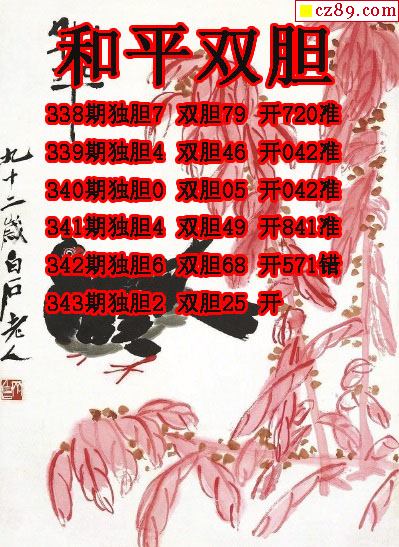 cz89.com
和平双胆
338期独胆7 双胆79 开720准
339期独胆4 双胆46 开042准
340期独胆0 双胆05 开042准
341期独胆4 双胆49 开841准
342期独胆6 双胆68 开571错
343期独胆2 双胆25 开
九十二岁白石老人